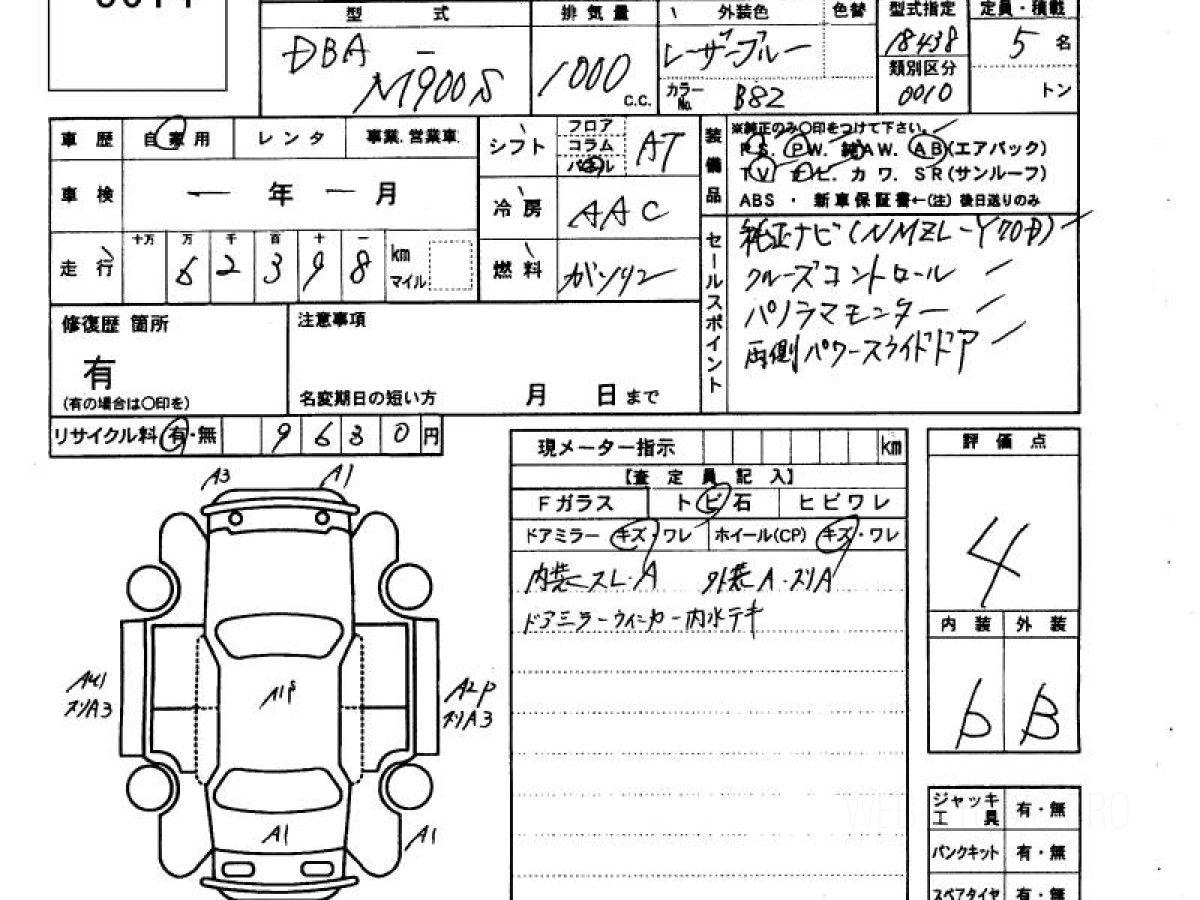 型 式 排 気 量 外装色 色替 型式指定 定員・積載
DBA - M900S
1000 C.C.
レーザーブルー
カラーNo. B82
18438
類別区分
0010
5 名
トン
車 歴 自家用 レンタ 事業.営業車.
車 検 ー 年 ー 月
走 行 十万 万 千 百 十 一
6 2 3 9 8 km マイル
シフト フロア コラム パネル AT
冷 房 AAC
燃 料 ガソリン
装備品
※純正のみ〇印をつけて下さい。
PS. PW. 純AW. AB(エアバック)
TV. ナビ. カワ. SR(サンルーフ)
ABS ・ 新車保証書←(注) 後日送りのみ
セールスポイント
純正ナビ(NMZL-Y70D)
クルーズコントロール
パノラマモニター
両側パワースライドドア
修復歴 箇所
有
(有の場合は〇印を)
注意事項
名変期日の短い方 月 日まで
リサイクル料 有・無 9630円
現メーター指示 km
【査 定 員 記 入】
Fガラス トビ石 ヒビワレ
ドアミラー キズ・ワレ ホイール(CP) キズ・ワレ
内装スレ・A 外装A・スリA
ドアミラーウィンカー内水テキ
評 価 点
4
内 装 外 装
b B
A3 A1
スリA3
A1P
A2P
スリA3
A1
A1
ジャッキ工具 有・無
パンクキット 有・無
スペアタイヤ 有・無